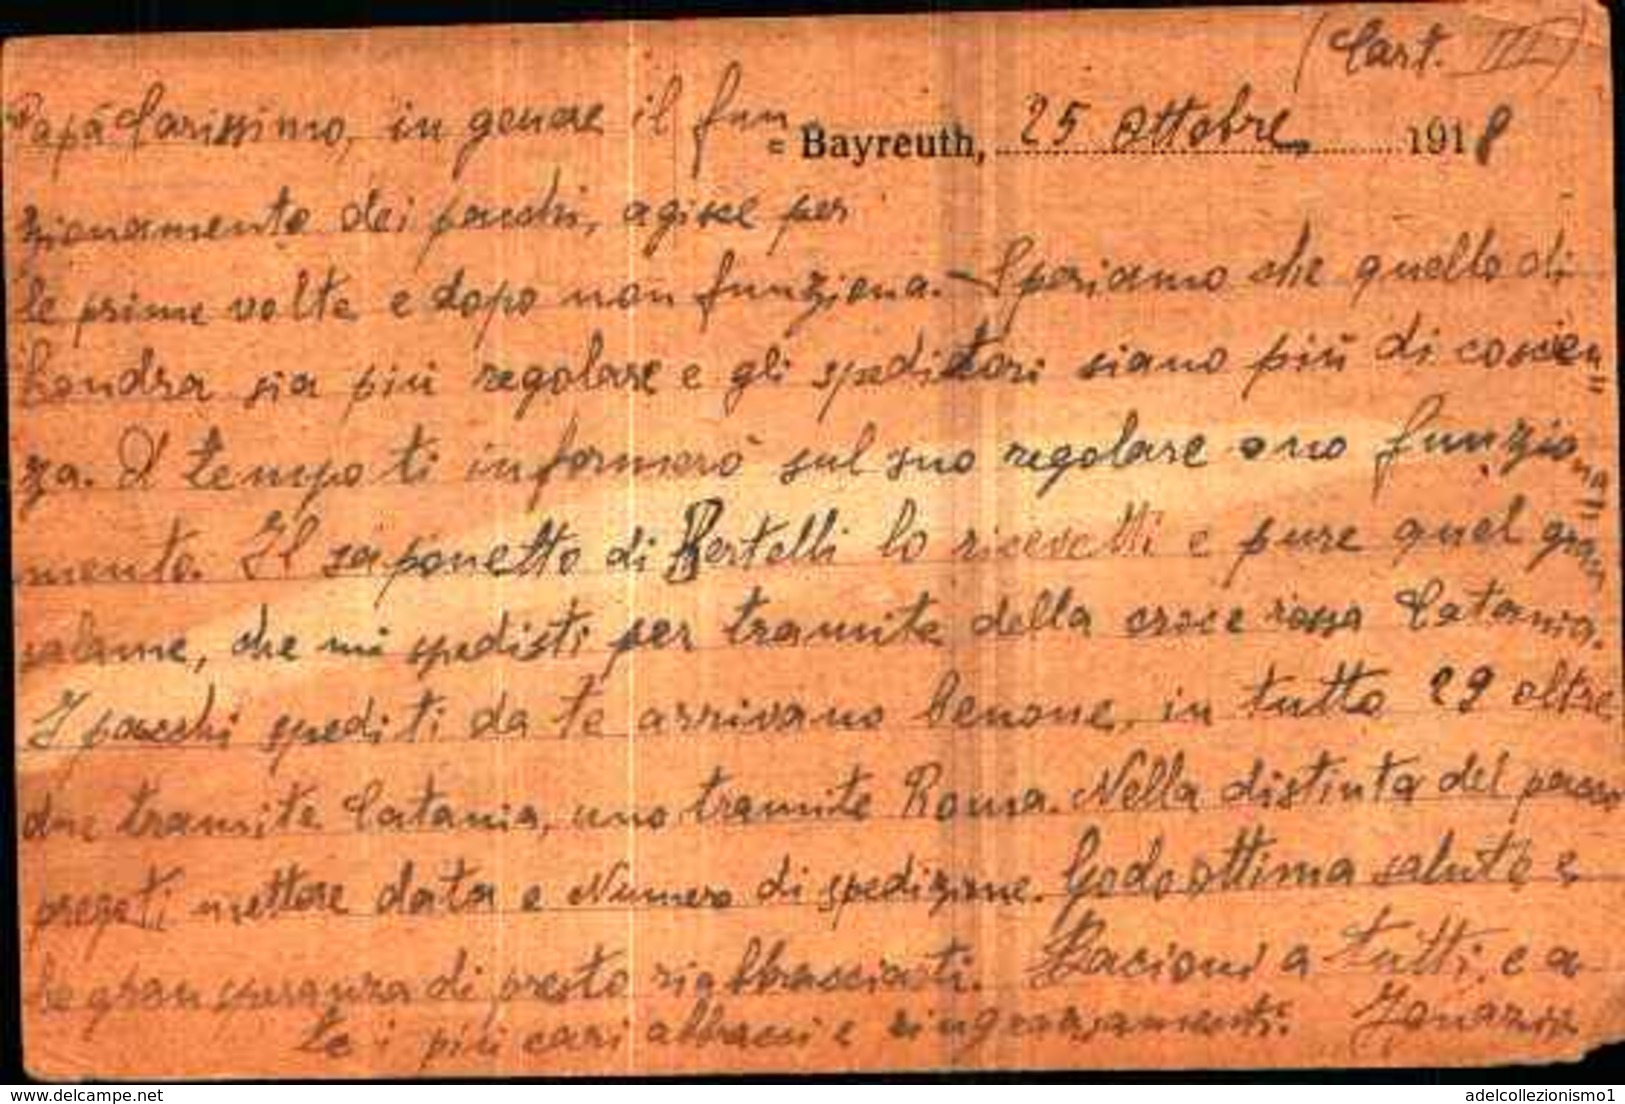 (Cart. III)
Papá Carissimo, in genere il fun
= Bayreuth, 25 Ottobre, 1918
zionamento dei pacchi, agisce per
le prime volte e dopo non funziona. - Speriamo che quello di
Londra sia più regolare e gli speditori siano più di coscien=
za. A tempo ti informerò sul suo regolare o no funziona=
mento. Il saponetto di Bertelli lo ricevetti e pure quel gran
salame, che mi spedisti per tramite della croce rossa Catania.
I pacchi spediti da te arrivano benone, in tutto 29 oltre
due tramite Catania, uno tramite Roma. Nella distinta del pacco
pregoti mettere data e Numero di spedizione. Godo ottima salute e
la gran speranza di presto riabbracciarti. Bacioni a tutti, e a
te i più cari abbracci e ringraziamenti.
delcampe.net
adelcollezionismo1